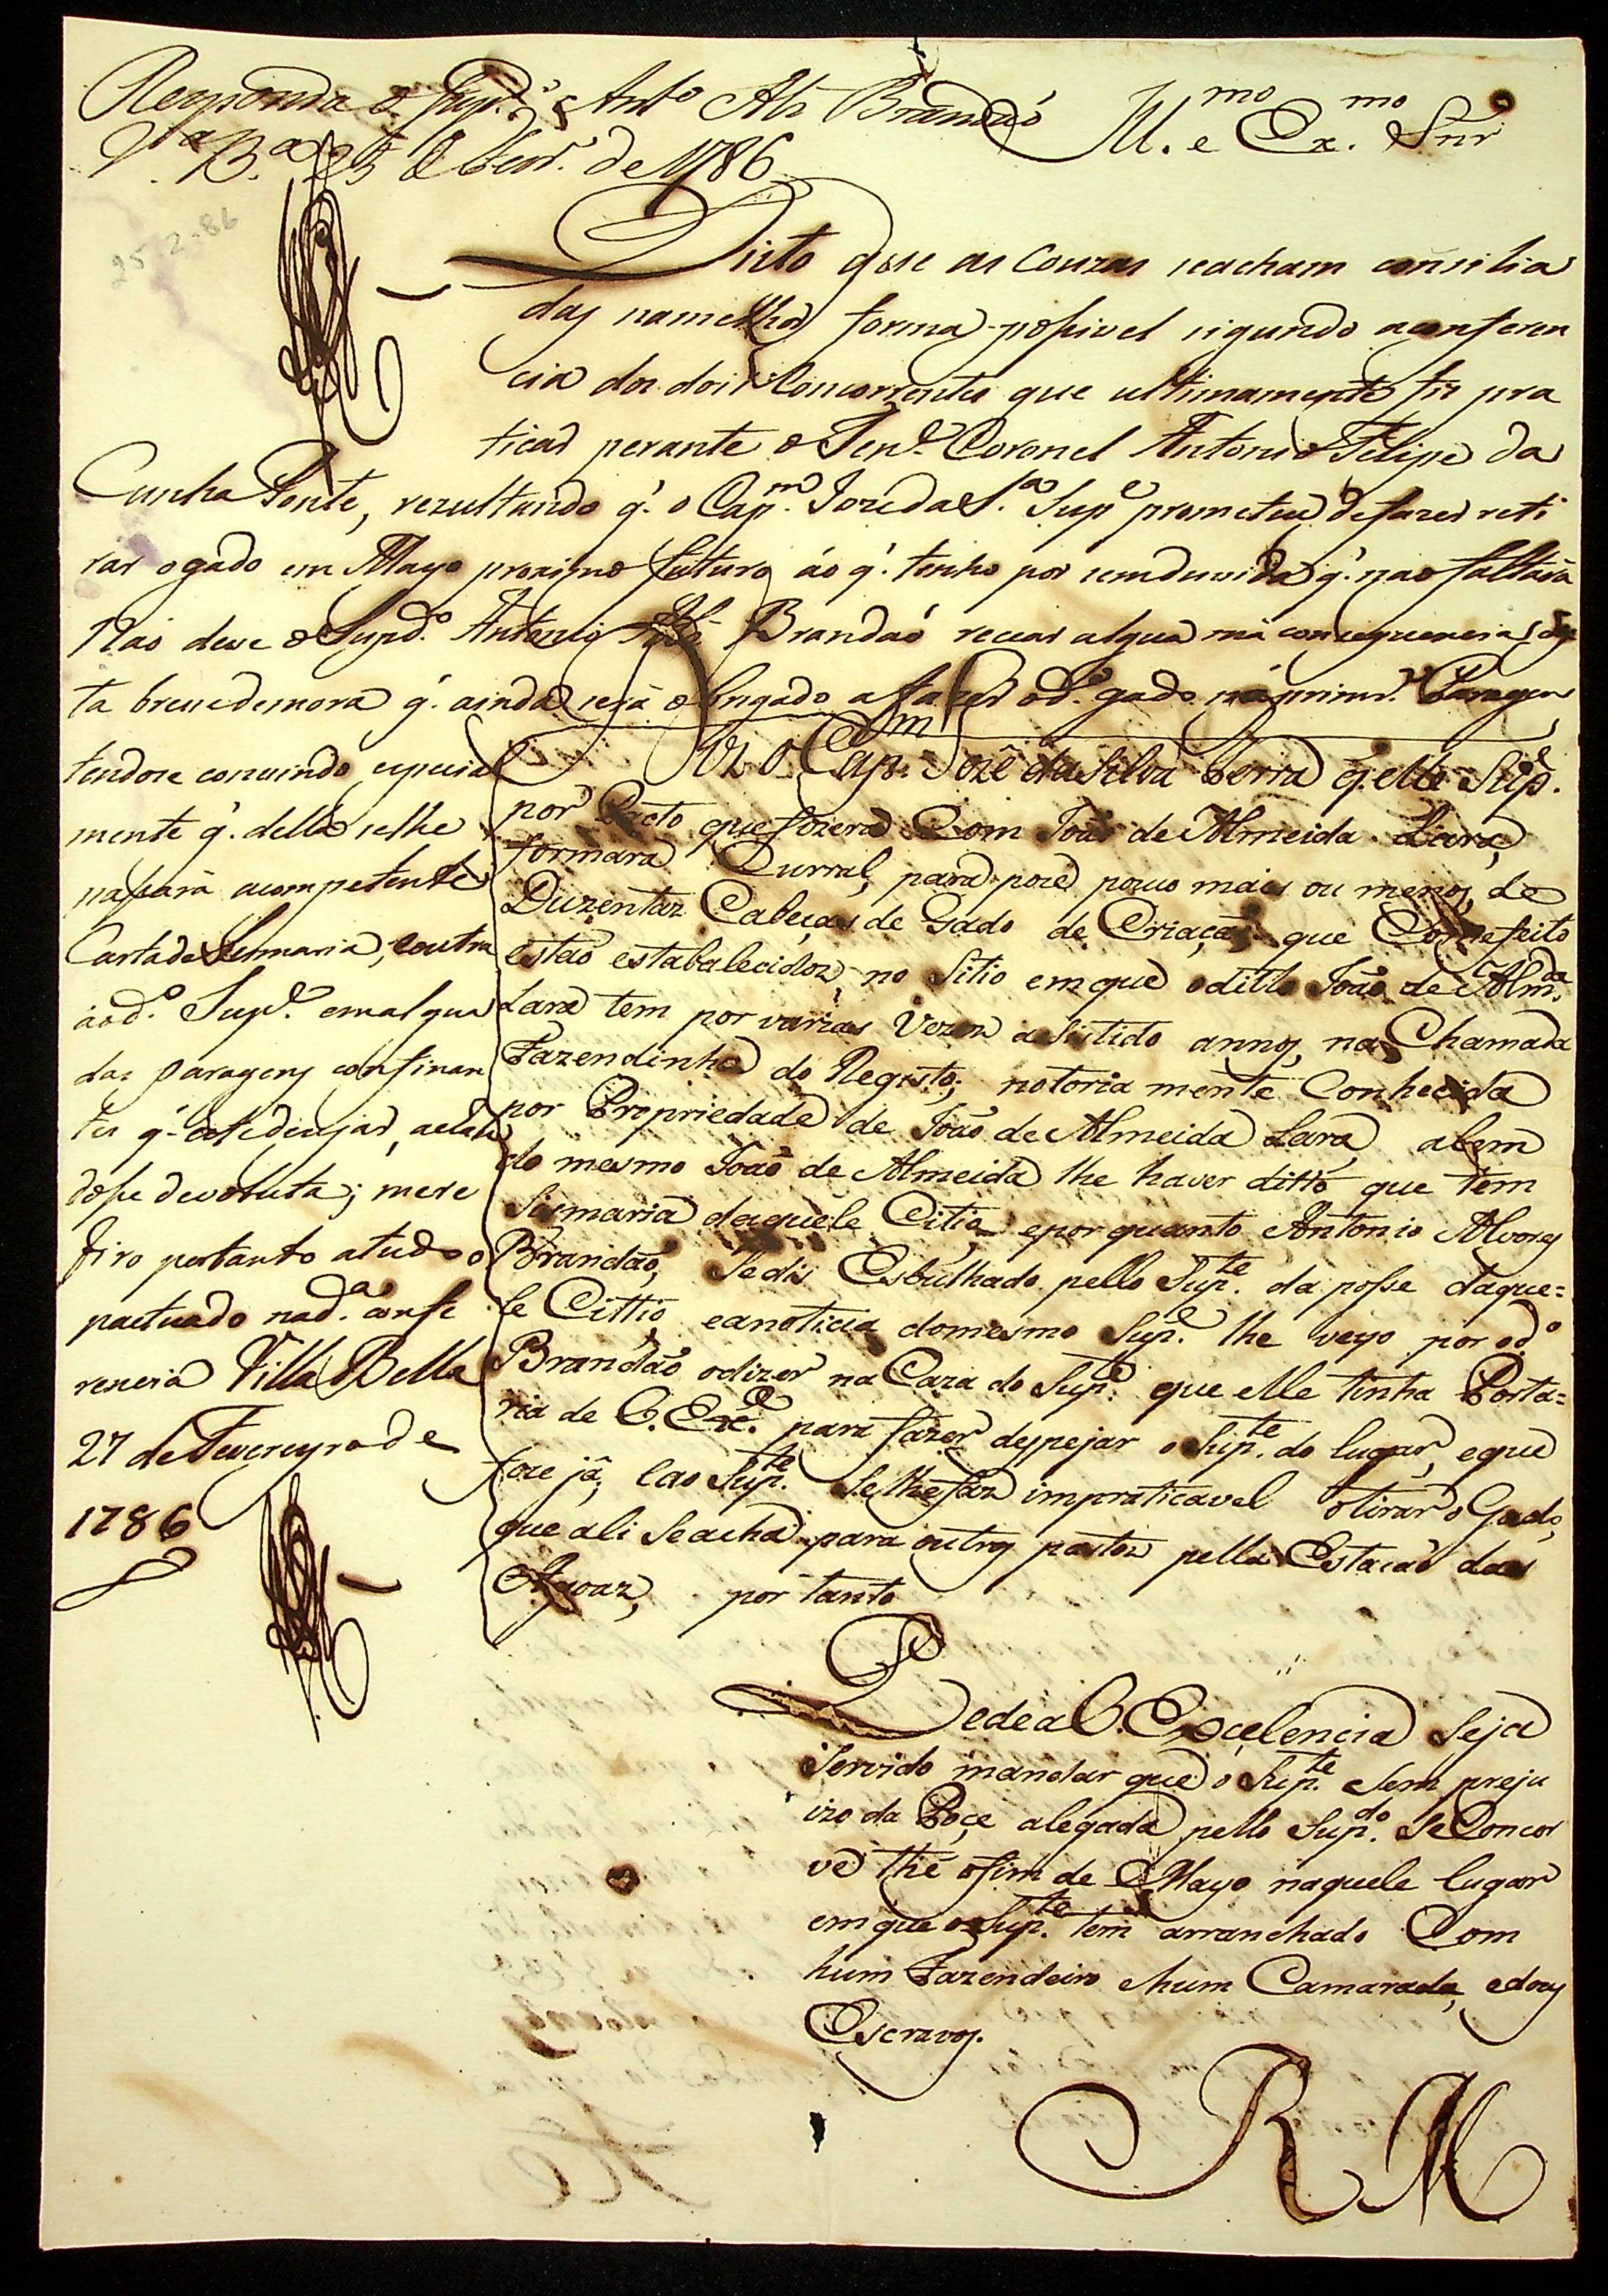 Responda o Sup.do Ant.o Alz Brandaó
V.a B.a 25 de Fevr.o de 1786
Ill.mo e Ex.mo Snr
25-2-86
Visto q̃ se as Couzas seacham consilia
das namelhor forma possivel sigundo aconferen
cia dos dois Concorrentes que ultimamente fiz pra
ticar perante o Ten.e Coronel Antonio Felipe da
Cunha Ponte, rezultando q̃. o Cap.m Joze da S.a Sup.e prometeu de fazer reti
rar ogado em Mayo proximo futuro áo q̃. tenho por semduvida q̃. nao faltará
Náo deve o Supd.o Antonio Alz Brandaó recear algua má consequencia des
ta breve demora q̃. ainda será obrigado afazer od.o gado
tendose convindo especial
mente q̃. della selhe
passará acompetente
Carta de Sesmaria, eoutra
aod.o Sup.e emalgua
das paragens confinan
tes q̃. este dezejar, achan
dosse devoluta; mere
firo portanto atudo o
pactuado nad.a confe
rencia Villa Bella
27 de Fevereyro de
1786
Diz o Cap.m Jozé da Silva Serra q̃. elle Sup.e
por Pacto que fizera Com Joaõ de Almeida Lara,
formara Curral, para por pouco mais ou menos, de
Duzentaz Cabeças de Gado de Criaçaõ, que Com efeito
estaõ estabalecidoz, no Sitio emque oditto Joaõ de Alm.da
Lara tem por varias Vezez asistido annos, na Chamada
Fazendinha do Registo; notoria mente Conhecida
por Propriedade de Joaõ de Almeida Lara, alem
do mesmo Joaõ de Almeida lhe haver ditto que tem
Sismaria daquele Citio, eporquanto Antonio Alvares
Brandaõ, Sedis Esbulhado pello Sup.te da posse daque=
le Cittio eanoticia domesmo Sup.e lhe veyo por od.o
Brandaõ odizer na Caza do Sup.e que elle tinha Porta=
ria de V. Ex.a para fazer despejar o Sup.te do lugar, eque
fose já, eao Sup.te Selhefaz impraticavel otirar o Gado,
que ali Seacha para outros pastoz pella Estacaõ das
Agoaz, por tanto
Pede a V. Excelencia Seja
Servido mandar que o Sup.te Sem preju
izo da Poçe alegada pello Sup.do Se Concer
ve thé ofim de Mayo naquele lugar
em que o Sup.te tem arranchado Com
hum Fazendeiro ehum Camarada, edous
Escravos.
R M